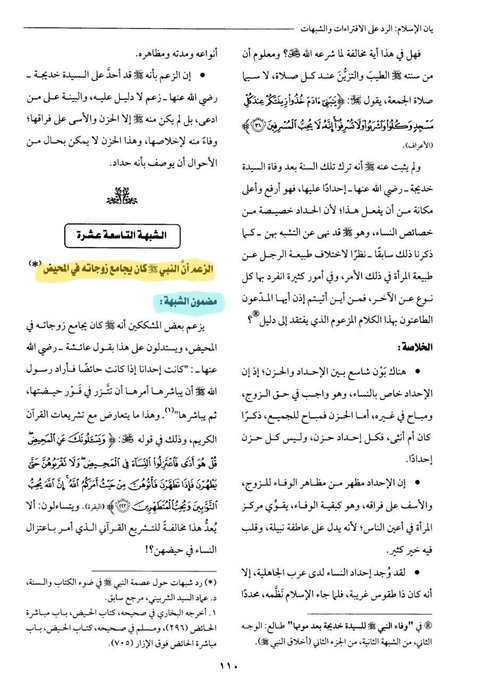 يان الإسلام: الرد على الافتراءات والشبهات
فهل في هذا أية مخالفة لما شرعه الله ﷻ؟ ومعلوم أن
من سنته ﷺ الطيب والتزيُّن عند كل صلاة، لا سيما
صلاة الجمعة، يقول ﷻ: ﴿يَبَنِي ءَادَمَ خُذُوا زِينَتَكُمْ عِندَ كُلِّ
مَسْجِدٍ وَكُلُوا وَاشْرَبُوا وَلَا تُسْرِفُوا إِنَّهُ لَا يُحِبُّ الْمُسْرِفِينَ ﴿٣١﴾﴾
(الأعراف).
ولم يثبت عنه ﷺ أنه ترك تلك السنة بعد وفاة السيدة
خديجة - رضي الله عنها - إحدادًا عليها، فهو أرفع وأعلى
مكانة من أن يفعل هذا؛ لأن الحداد خصيصة من
خصائص النساء، وهو ﷺ قد نهى عن التشبه بهن - كما
ذكرنا سابقًا - نظرًا لاختلاف طبيعة الرجل عن
طبيعة المرأة في ذلك الأمر، وفي أمور كثيرة انفرد بها كل
نوع عن الآخر، فمن أين أتيتم إذن أيها المدَّعون
الطاعنون بهذا الكلام المزعوم الذي يفتقد إلى دليل؟®
الخلاصة:
• هناك بَوْن شاسع بين الإحداد والحزن؛ إذ إن
الإحداد خاص بالنساء، وهو واجب في حق الزوج،
ومباح في غيره، أما الحزن فمباح للجميع، ذكرًا
كان أم أنثى، فكل إحداد حزن، وليس كل حزن
إحدادًا.
• إن الإحداد مظهر من مظاهر الوفاء للزوج،
والأسف على فراقه، وهو كبقية الوفاء، يقوِّي مركز
المرأة في أعين الناس؛ لأنه يدل على عاطفة نبيلة، وقلب
فيه خير كثير.
• لقد وُجد إحداد النساء لدى عرب الجاهلية، إلا
أنه كان ذا طقوس غريبة، فلما جاء الإسلام نَظَّمه، محددًا
® في "وفاء النبي ﷺ للسيدة خديجة بعد موتها" طالع: الوجه
الثاني، من الشبهة الثانية، من الجزء الثاني (أخلاق النبي ﷺ).
أنواعه ومدته ومظاهره.
• إن الزعم بأنه ﷺ قد أحدَّ على السيدة خديجة -
رضي الله عنها - زعم لا دليل عليه، والبينة على من
ادعى، بل لم يكن منه ﷺ إلا الحزن والأسى على فراقها؛
وفاءً منه لإخلاصها، وهذا الحزن لا يمكن بحال من
الأحوال أن يوصف بأنه حداد.
الشبهة التاسعة عشرة
الزعم أنَّ النبي ﷺ كان يجامع زوجاته في المحيض (*)
مضمون الشبهة:
يزعم بعض المشككين أنه ﷺ كان يجامع زوجاته في
المحيض، ويستدلون على هذا بقول عائشة - رضي الله
عنها -: "كانت إحدانا إذا كانت حائضًا فأراد رسول
الله ﷺ أن يباشرها أمرها أن تتَّزر في فَوْر حيضتها،
ثم يباشرها"(١). وهذا ما يتعارض مع تشريعات القرآن
الكريم، وذلك في قوله ﷻ: ﴿وَيَسْئَلُونَكَ عَنِ الْمَحِيضِ
قُلْ هُوَ أَذًى فَاعْتَزِلُوا النِّسَاءَ فِي الْمَحِيضِ وَلَا تَقْرَبُوهُنَّ حَتَّى
يَطْهُرْنَ فَإِذَا تَطَهَّرْنَ فَأْتُوهُنَّ مِنْ حَيْثُ أَمَرَكُمُ اللَّهُ إِنَّ اللَّهَ يُحِبُّ
التَّوَّابِينَ وَيُحِبُّ الْمُتَطَهِّرِينَ ﴿٢٢٢﴾﴾ (البقرة). ويتساءلون: ألا
يُعدُّ هذا مخالفةً للتشريع القرآني الذي أمر باعتزال
النساء في حيضهن؟!
(*) رد شبهات حول عصمة النبي ﷺ في ضوء الكتاب والسنة،
د. عماد السيد الشربيني، مرجع سابق.
١. أخرجه البخاري في صحيحه، كتاب الحيض، باب مباشرة
الحائض (٢٩٦)، ومسلم في صحيحه، كتاب الحيض، باب
مباشرة الحائض فوق الإزار (٧٠٥).
١١٠